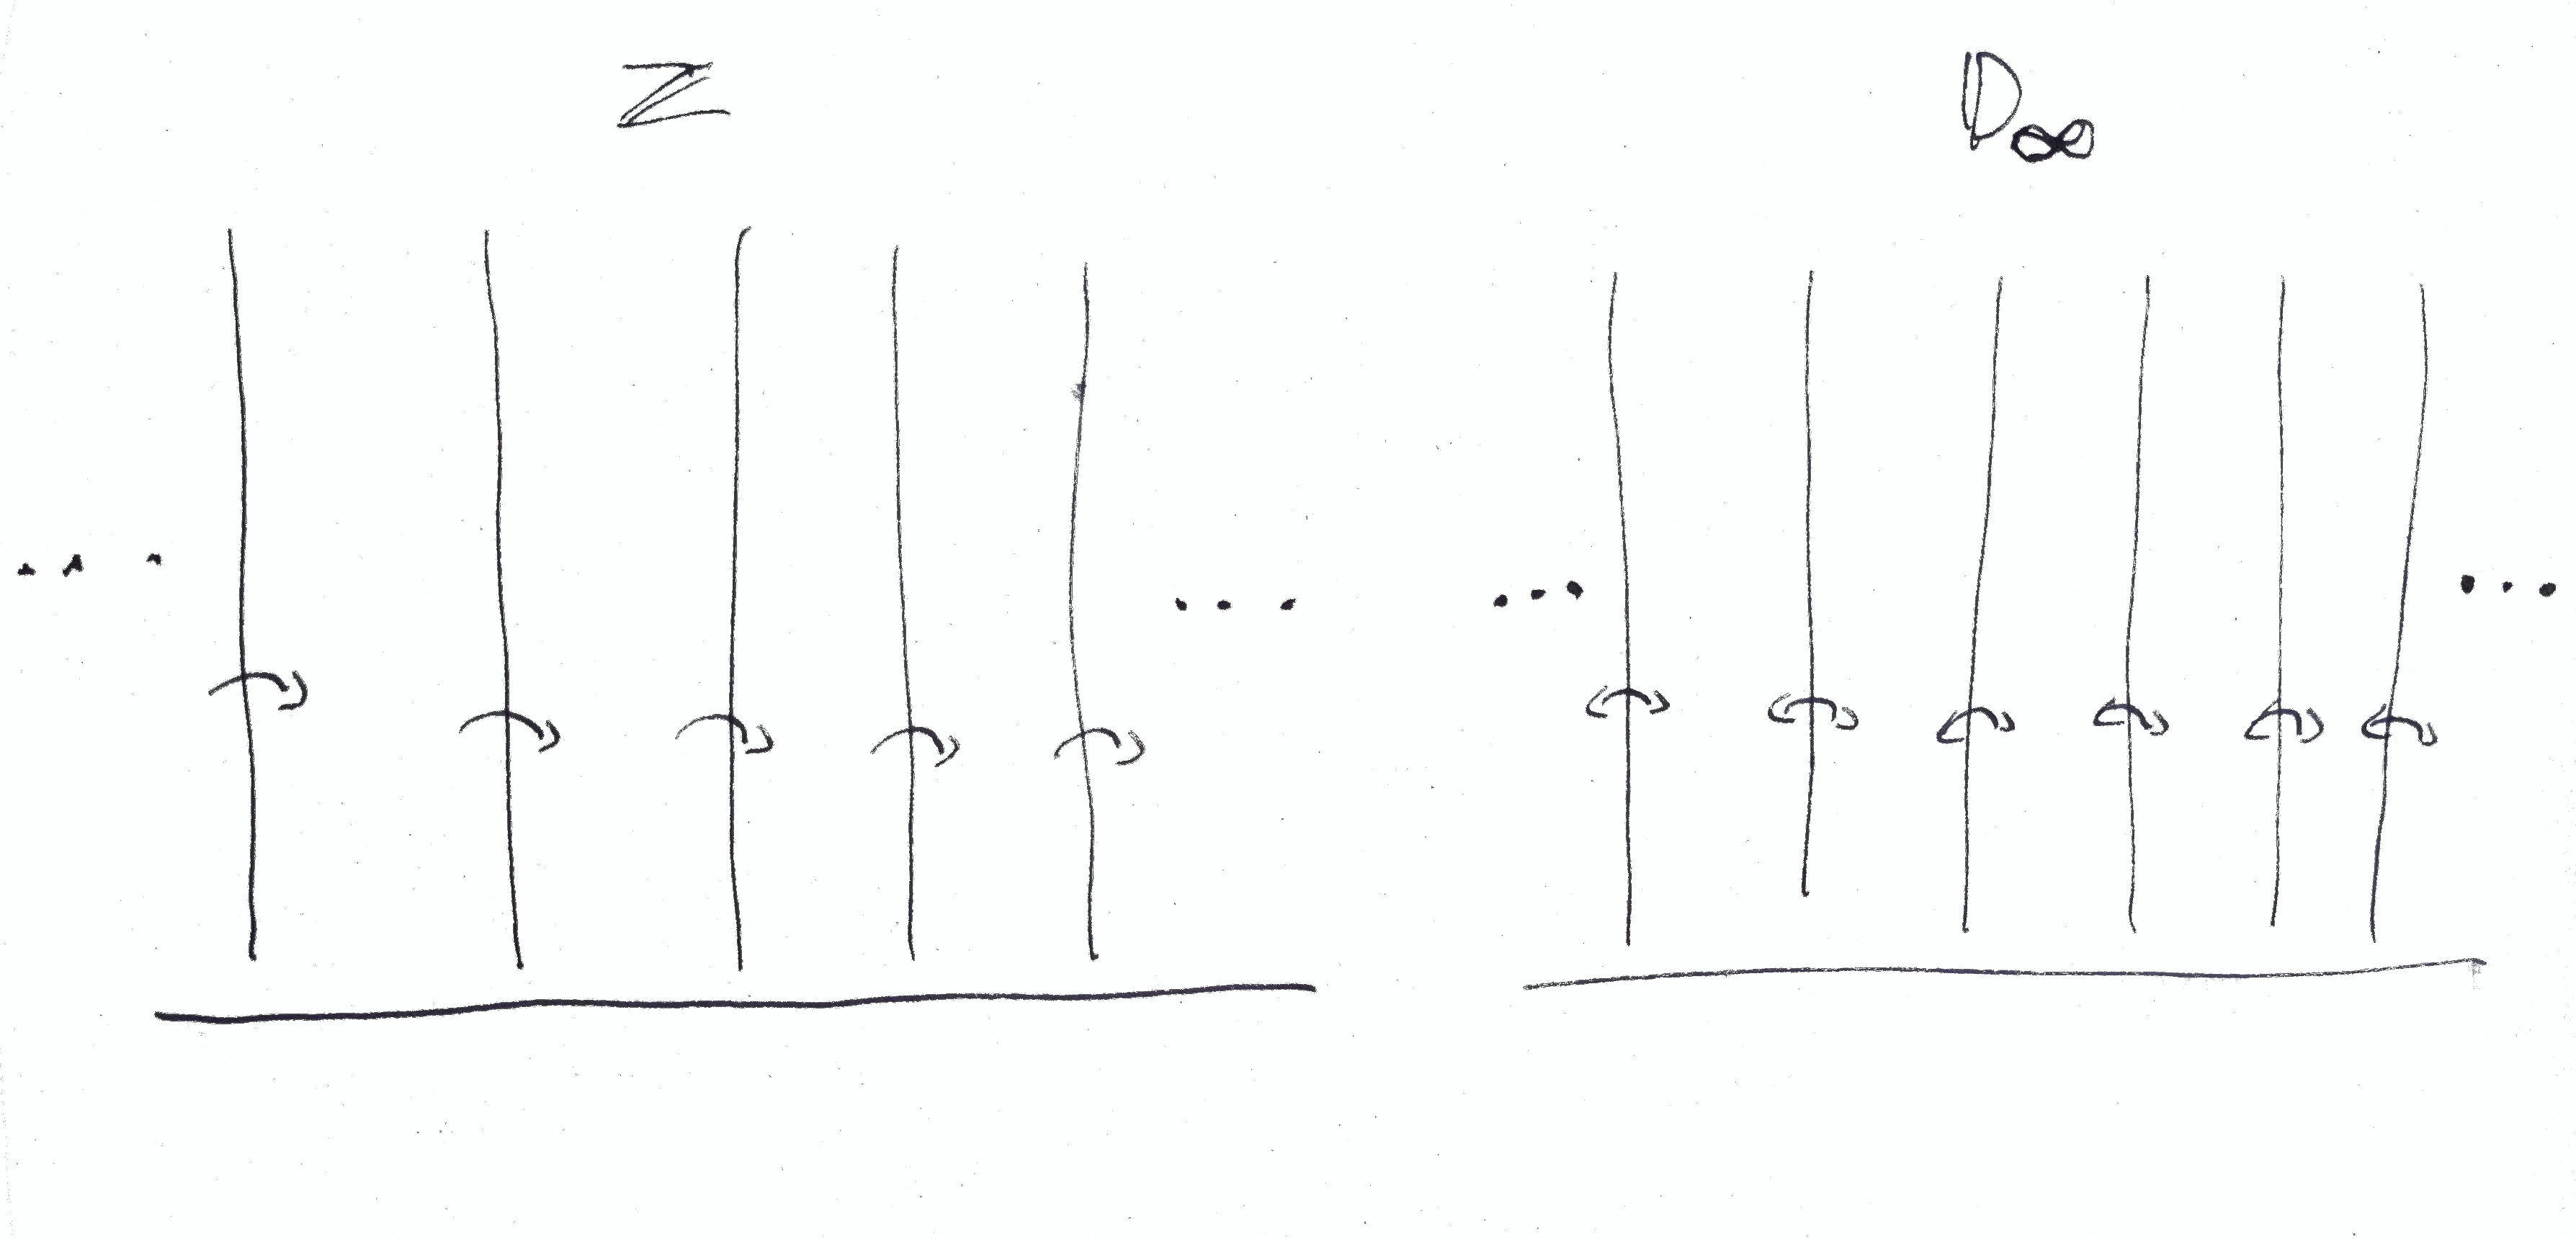 ℤ
D∞